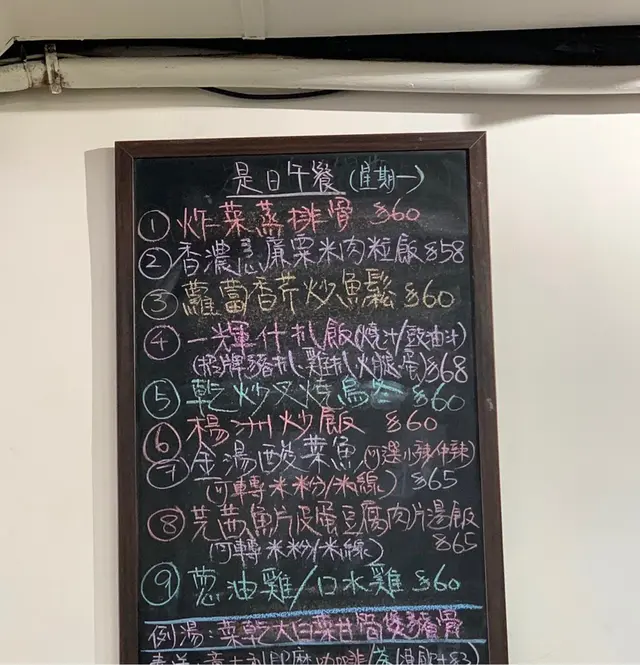 是日午餐(星期一)
① 炸菜蒸排骨 $60
② 香濃忌廉粟米肉粒飯 $58
③ 蘿蔔香芹炒魚鬆 $60
④ 一輝什扒飯(燒汁/豉油汁)
(招牌豬扒、雞扒、火腿、蛋) $68
⑤ 乾炒叉燒烏冬 $60
⑥ 楊洲炒飯 $60
⑦ 金湯酸菜魚(可選小辣/中辣)
(可轉米粉/米線) $65
⑧ 芫茜魚片皮蛋豆腐肉片湯飯
(可轉米粉/米線) $65
⑨ 蔥油雞/口水雞 $60
例湯:菜乾大白菜煲豬骨